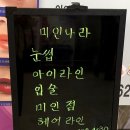 미인나라
눈썹
아이라인
입술
미인점
헤어라인